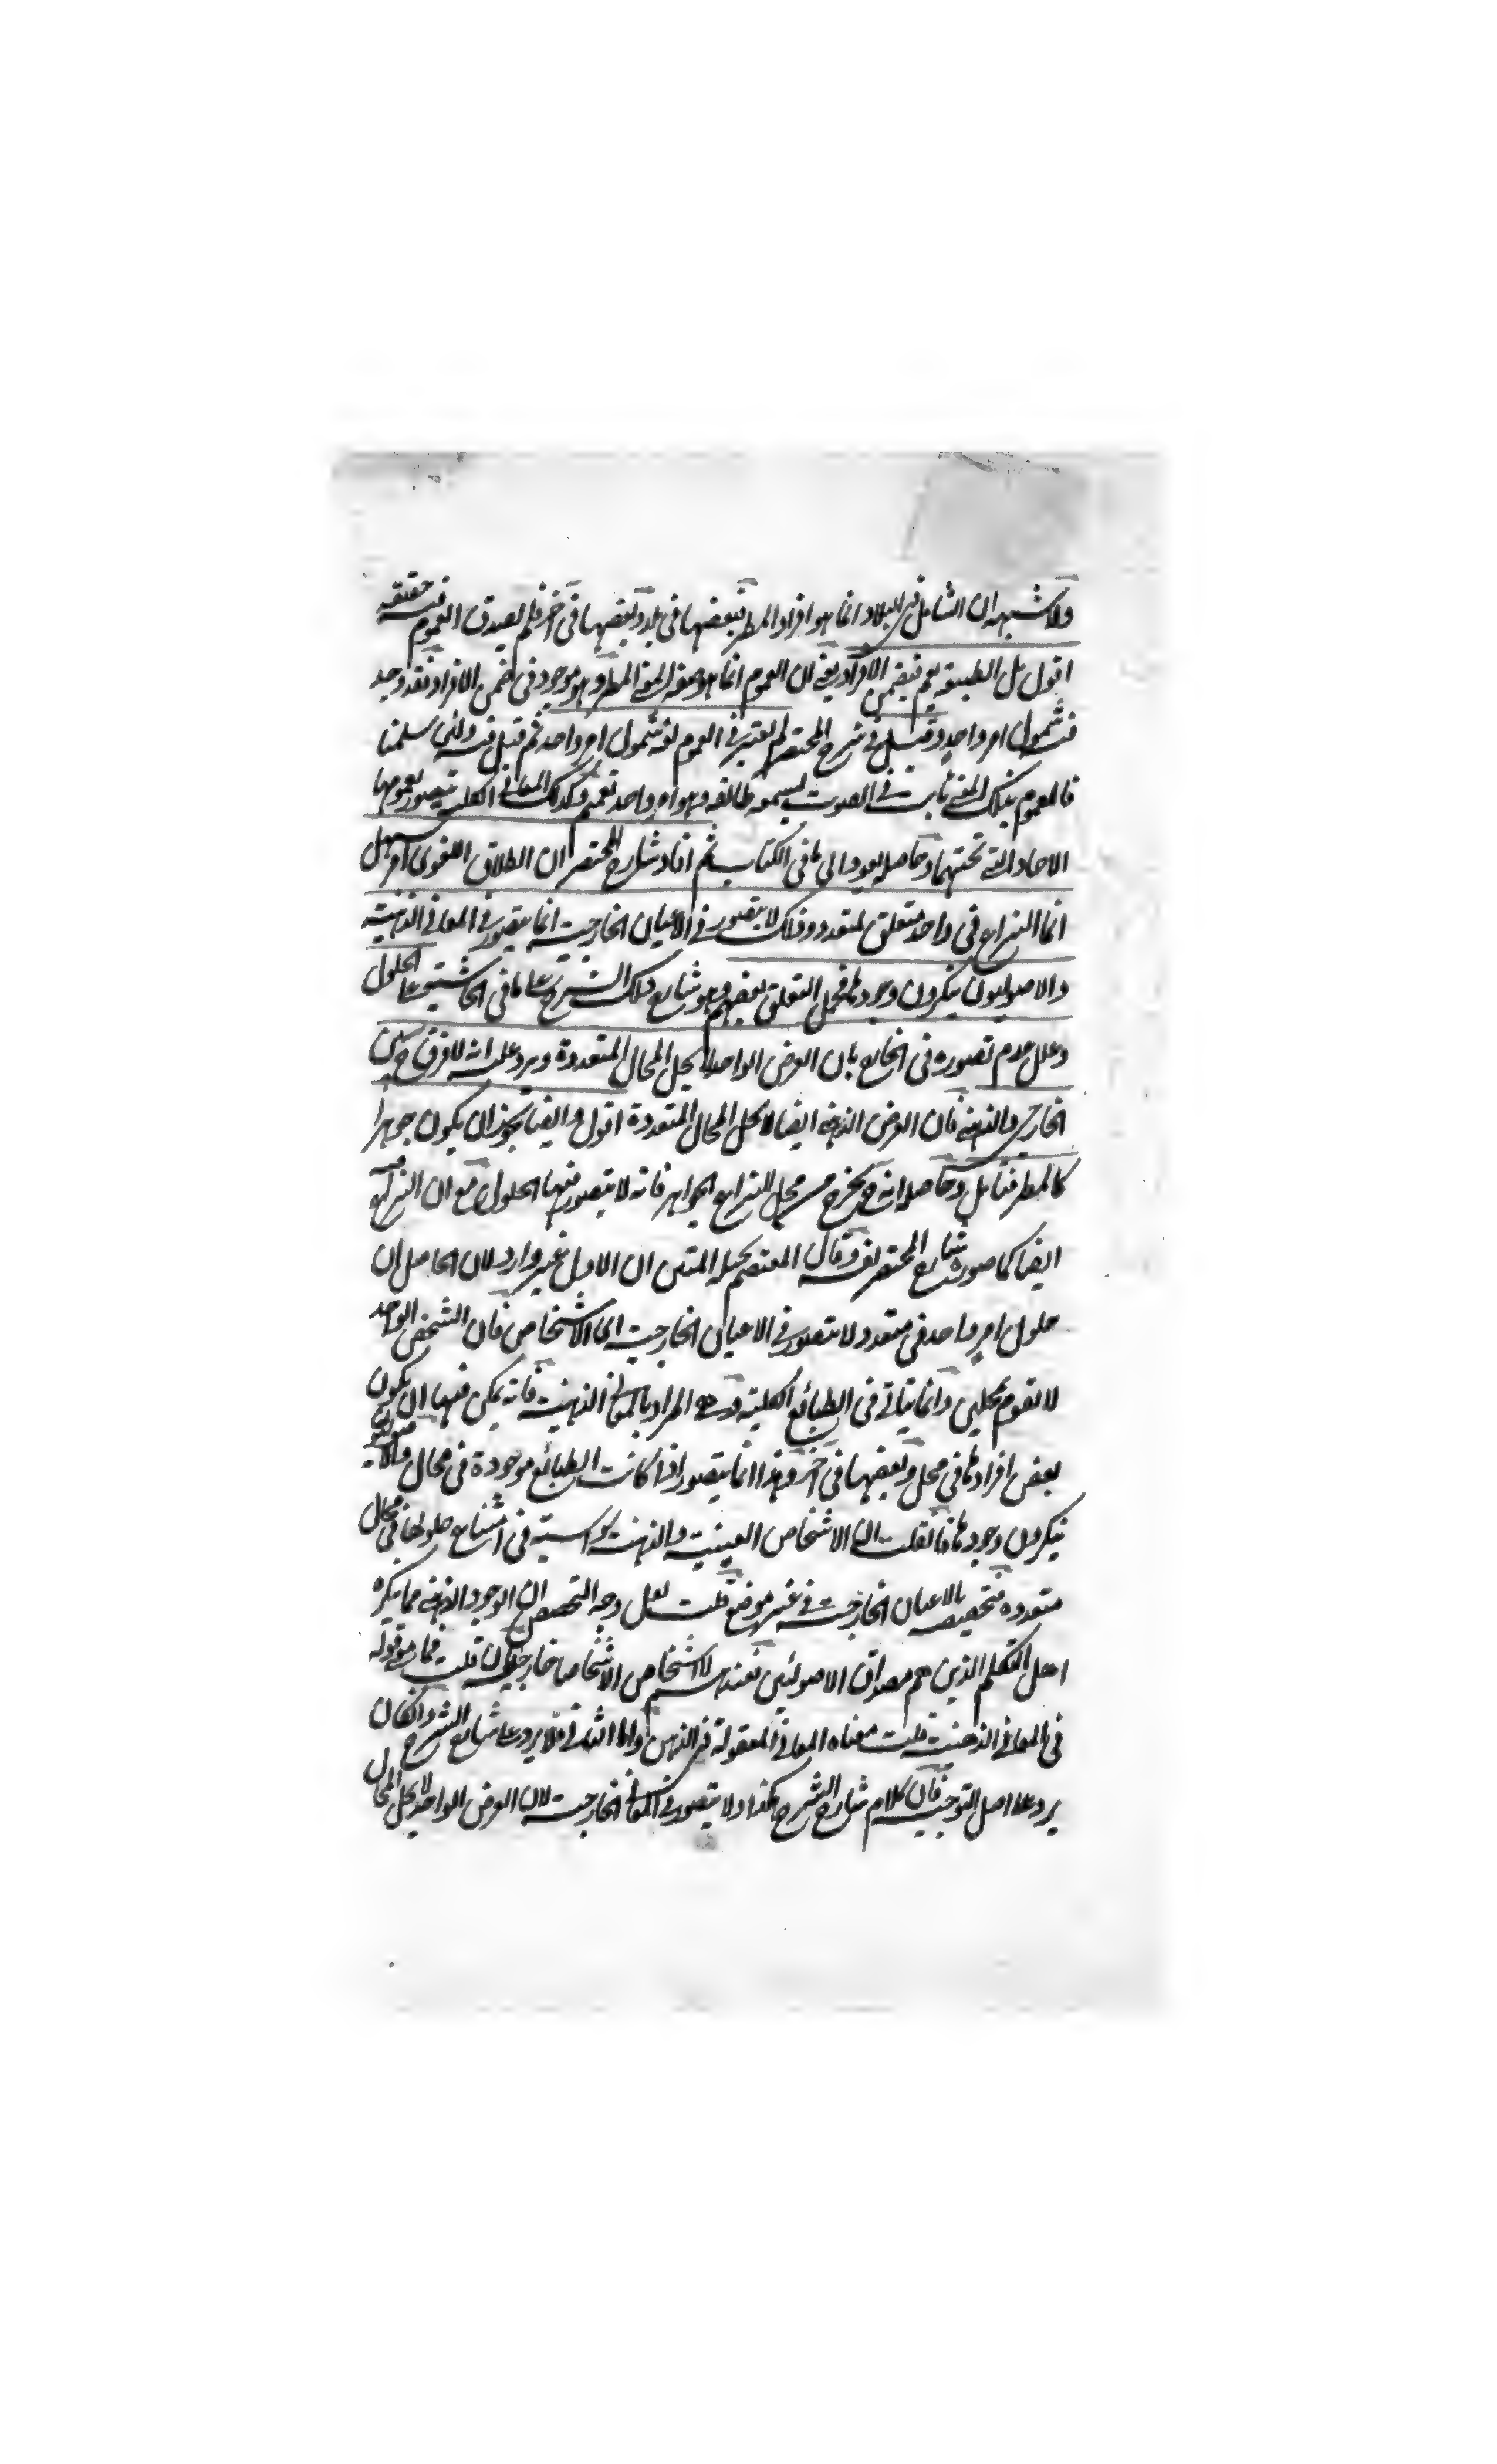 ولا شبهه ان الشامل في البلاد انما هو افراد المطر فبعضها في بلد وبعضها في آخر فلم يصدق العموم فيه حقيقه
اقول بل الطبيعه يعم فيضمن الافراد يعني ان العموم انما هو صفه لمعنى المطر وهو موجود في ضمن الافراد فقد وجد
فيه شمول امر واحد وقيل في شرح المختصر لم يعتبر في العموم لغة شمول امر واحد ثم قيل فيه ولئن سلمنا
فالعموم بذلك المعنى ثابت في الصوت يسمعه طائفه وهو امر واحد تعميم وكذلك المعاني الكليه يتصور عمومها
الاحاد التي تحتها وحاصله يعود الى ما في الكتاب ثم افاد شارح المختصر ان الاطلاق اللغوي امر سهل
انما النزاع في واحد متعلق لمتعدد وذلك لا يتصور في الاعيان الخارجيه انما يتصور في المعاني الذهنيه
والاصوليون ينكرون وجودها فحمل التعلق بعضهم وهو شارح ذلك الشرح على ما في الحاشيه على الحلول
وعلل عدم تصوره في الخارج بان العرض الواحد لا يحل المحال المتعددة ويرد عليه انه لا فرق ح بين
الخارجي والذهني فان العرض الذهني ايضا لا يحل المحال المتعددة اقول وايضا يجوز ان يكون جوهرا
كالمطر فتامل وحاصله انه ح يخرج من محل النزاع الجواهر فانه لا يتصور فيها الحلول مع ان النزاع فيه
ايضا كما صوره شارح المختصر نفسه وقال المعتصم بحبله المتين ان الاول غير وارد لان الحاصل ان
حلول امر واحد في متعدد لا يتصور في الاعيان الخارجيه اي الاشخاص فان الشخص الواحد
لا تقوم بمحلين وانما يتاتى في الطبائع الكليه وهي المراد بالمعاني الذهنيه فانه يمكن فيها ان يكون
بعض افرادها في محل وبعضها في آخر وهذا انما يتصور اذا كانت الطبائع موجودة في محال والاصوليون
ينكرون وجودها فان قلت ان الاشخاص العينيه والذهنيه سواسيه في امتناع حلولها في محال
متعدده فتخصيصه بالاعيان الخارجيه في غير موضع قلت لعل وجه التخصيص ان الوجود الذهني مما ينكره
اهل التكلم الذين هم مصداق الاصوليين فعندهم لا اشخاص الا اشخاصا خارجيه فان قلت فما معنى قوله
في المعاني الذهنيه قلت معناه المعاني المعقولة في الذهن واما الثاني فلا يرد على شارح الشرح وان كان
يرد على اصل التوجيه فان كلام شارح الشرح هكذا ولا يتصور في المعاني الخارجيه لان العرض الواحد لا يحل المحال